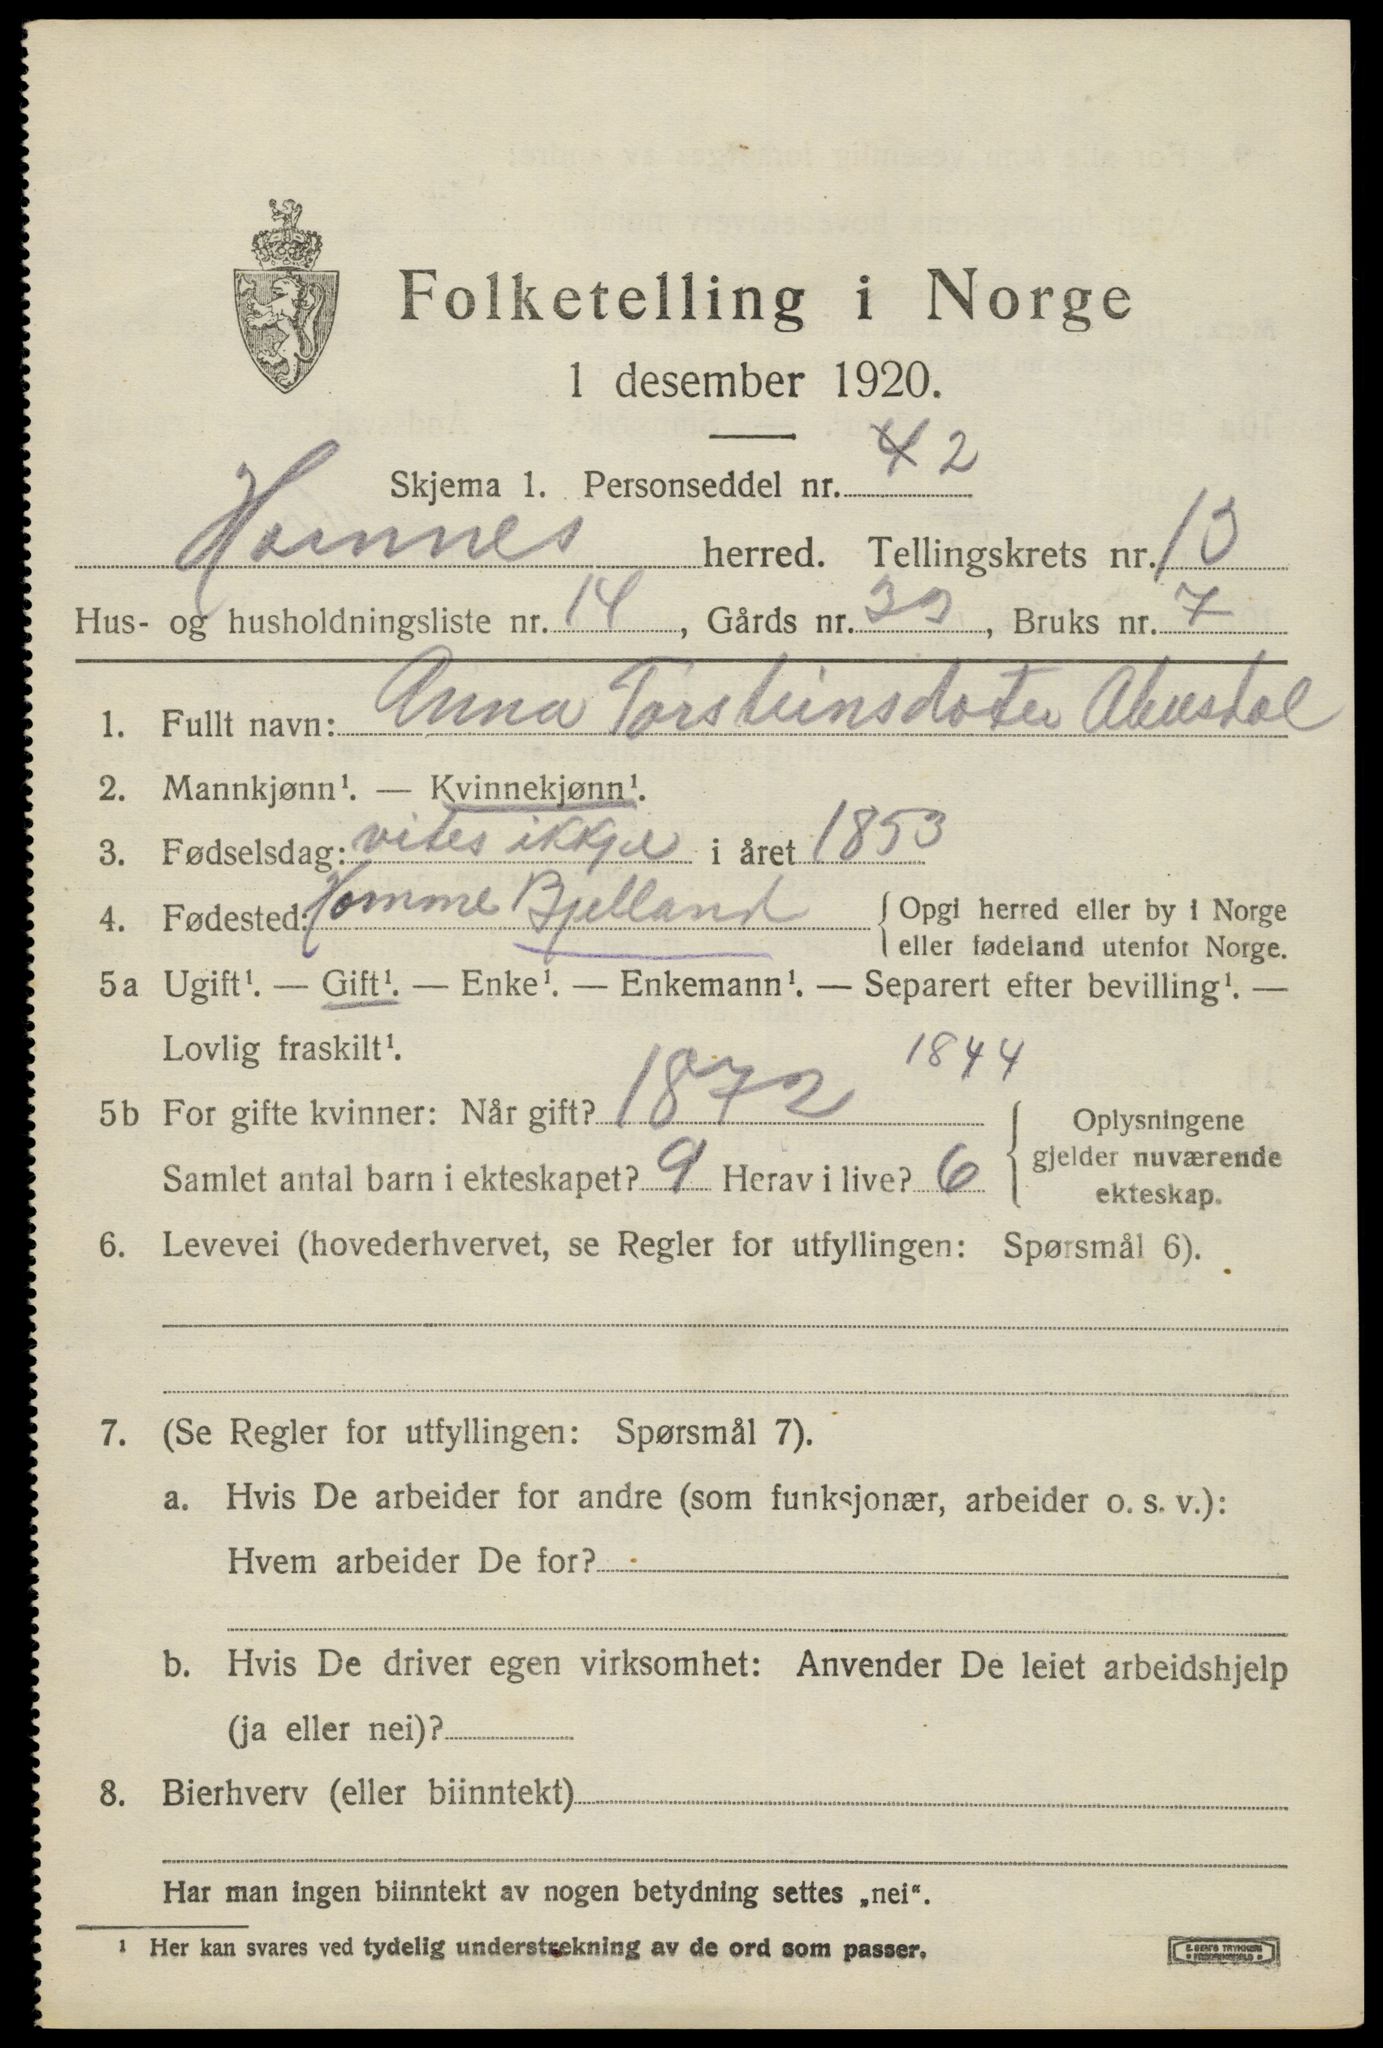 Folketelling i Norge
1 desember 1920.
Skjema 1. Personseddel nr. 42
Hornnes herred. Tellingskrets nr. 13
Hus- og husholdningsliste nr. 14, Gårds nr. 33, Bruks nr. 7
1. Fullt navn: Anna Torsteinsdoter
2. Mannkjønn¹. — Kvinnekjønn¹.
3. Fødselsdag: vites ikkje i året 1853
4. Fødested: Homme Bjelland { Opgi herred eller by i Norge
eller fødeland utenfor Norge.
5a Ugift¹. — Gift¹. — Enke¹. — Enkemann¹. — Separert efter bevilling¹. —
Lovlig fraskilt¹. 1844
5b For gifte kvinner: Når gift? 1872
Samlet antal barn i ekteskapet? 9 Herav i live? 6
{ Oplysningene
gjelder nuværende
ekteskap.
6. Levevei (hovederhvervet, se Regler for utfyllingen: Spørsmål 6).
7. (Se Regler for utfyllingen: Spørsmål 7).
a. Hvis De arbeider for andre (som funksjonær, arbeider o. s. v.):
Hvem arbeider De for?
b. Hvis De driver egen virksomhet: Anvender De leiet arbeidshjelp
(ja eller nei)?
8. Bierhverv (eller biinntekt)
Har man ingen biinntekt av nogen betydning settes „nei".
¹ Her kan svares ved tydelig understrekning av de ord som passer.